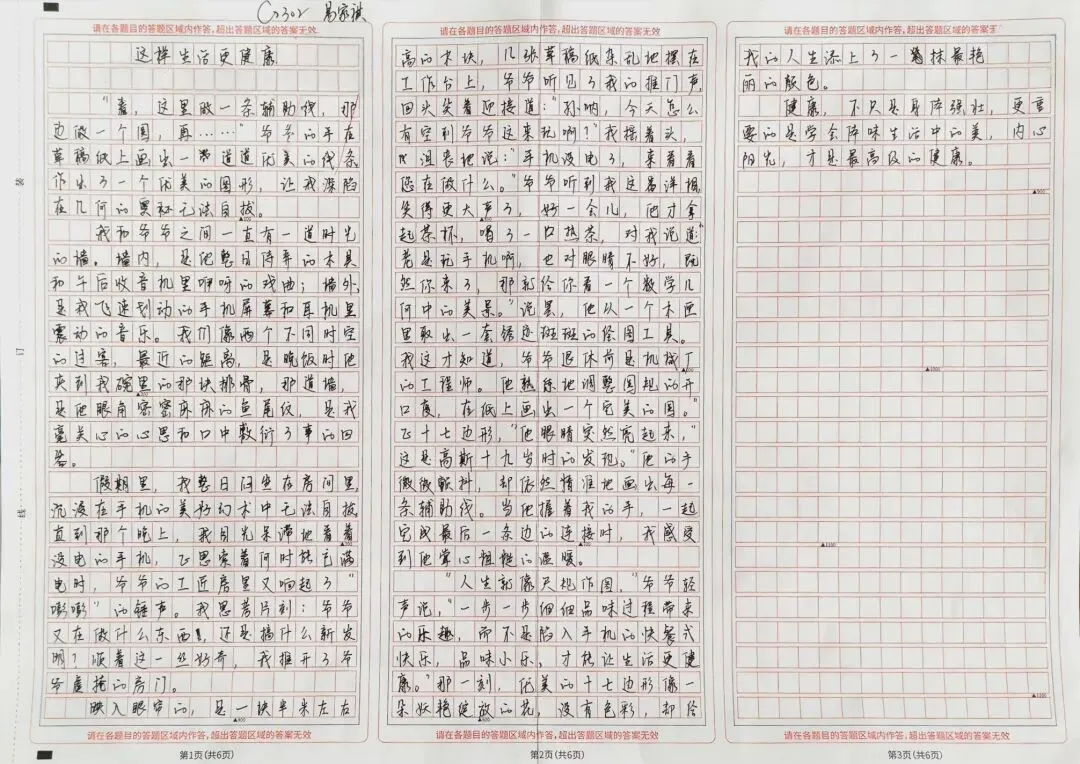 C2302 易家琪
请在各题目的答题区域内作答,超出答题区域的答案无效
这样生活更健康
"喜,这里做一条辅助线,那
边做一个圆,再……"爷爷的手在
草稿纸上画出一道道优美的线条
作出了一个优美的图形,让我深陷
在几何的奥秘无法自拔。
我和爷爷之间一直有一道时光
的墙。墙内,是他整日侍弄的木具
和午后收音机里咿呀的戏曲;墙外,
是我飞速划动的手机屏幕和耳机里
震动的音乐。我们像两个不同时空
的过客,最近的距离,是晚饭时他
夹到我碗里的那块排骨,那道墙,
是他眼角密密麻麻的鱼尾纹,是我
毫关心的心思和口中敷衍了事的回
答。
假期里,我整日闷坐在房间里,
沉浸在手机的美好幻术中无法自拔
直到那个晚上,我目光呆滞地看着
没电的手机,飞思索着何时能充满
电时,爷爷的工匠房里又响起了"
嘭嘭"的锤声。我思考片刻:爷爷
又在做什么东西,还是搞什么新发
明?顺着这一丝好奇,我推开了爷
爷虚掩的房门。
映入眼帘的,是一块半米左右
请在各题目的答题区域内作答,超出答题区域的答案无效
第1页(共6页)
装
订
线
请在各题目的答题区域内作答,超出答题区域的答案无效
高的木块,几张草稿纸杂乱地摆在
工作台上,爷爷听见了我的推门声,
回头笑着迎接道:"孙呐,今天怎么
有空到爷爷这来玩啊?"我摇着头,
沮丧地说:"手机没电了,来看看
您在做什么。"爷爷听到我这番洋相,
笑得更大声了,好一会儿,他才拿
起茶杯,喝了一口热茶,对我说道"
老是玩手机啊,也对眼睛不好,既
然你来了,那就给你看一个数学几
何中的美景。"说罢,他从一个木匣
里取出一套锈迹斑斑的绘图工具。
我这才知道,爷爷退休前是机械厂
的工程师。他熟练地调整圆规的开
口度,在纸上画出一个完美的圆。"
正十七边形,"他眼睛突然亮起来,"
这是高斯十九岁时的发现。"他的手
微微颤抖,却依然精准地画出每一
条辅助线。当他握着我的手,一起
完成最后一条边的连接时,我感受
到他掌心粗糙的温暖。
"人生就像尺规作图,"爷爷轻
声说,"一步一步细细品味过程带来
的乐趣,而不是陷入手机的快餐式
快乐,品味小乐,才能让生活更健
康。"那一刻,优美的十七边形像一
朵妖艳绽放的花,没有色彩,却给
请在各题目的答题区域内作答,超出答题区域的答案无效
第2页(共6页)
请在各题目的答题区域内作答,超出答题区域的答案无
我的人生添上了一抹最艳
丽的颜色。
健康,不只是身体强壮,更重
要的是学会体味生活中的美,内心
阳光,才是最高级的健康。
请在各题目的答题区域内作答,超出答题区域的答案无效
第3页(共6页)